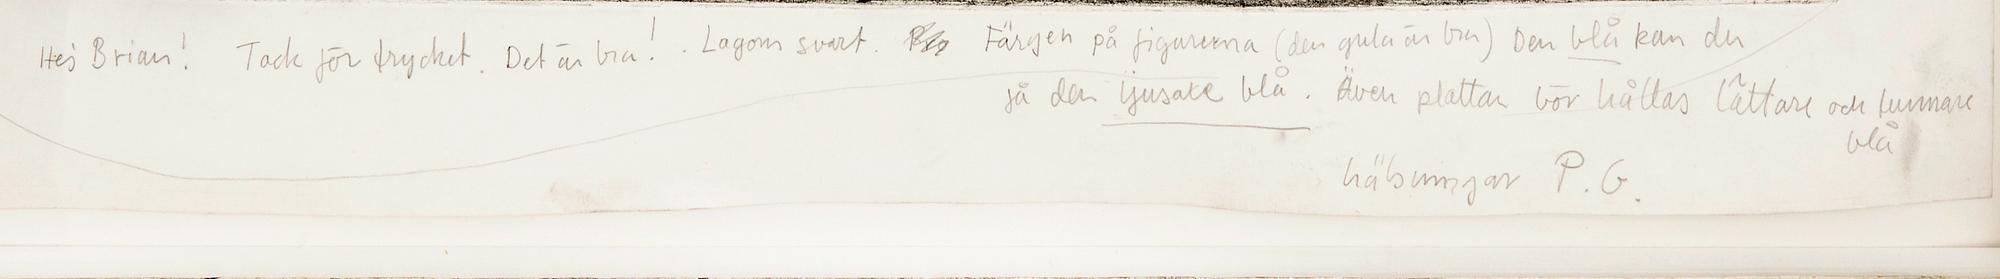 Hej Brian! Tack för trycket. Det är bra! . Lagom svart. Färgen på figurerna (den gula är bra) Den blå kan du
få den ljusare blå. Även plattan bör hållas lättare och tunnare
blå
hälsningar P.G.